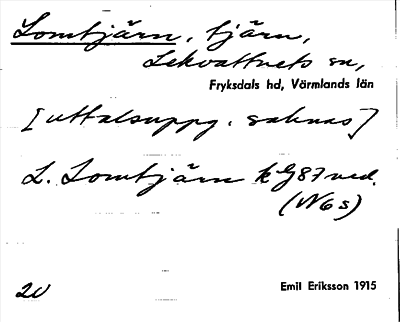 Lomtjärn, tjärn,
Lekvattnets sn,
Fryksdals hd, Värmlands län
[uttalsuppg. saknas]
L. Lomtjärn k G87 ned.
(N6s)
20
Emil Eriksson 1915